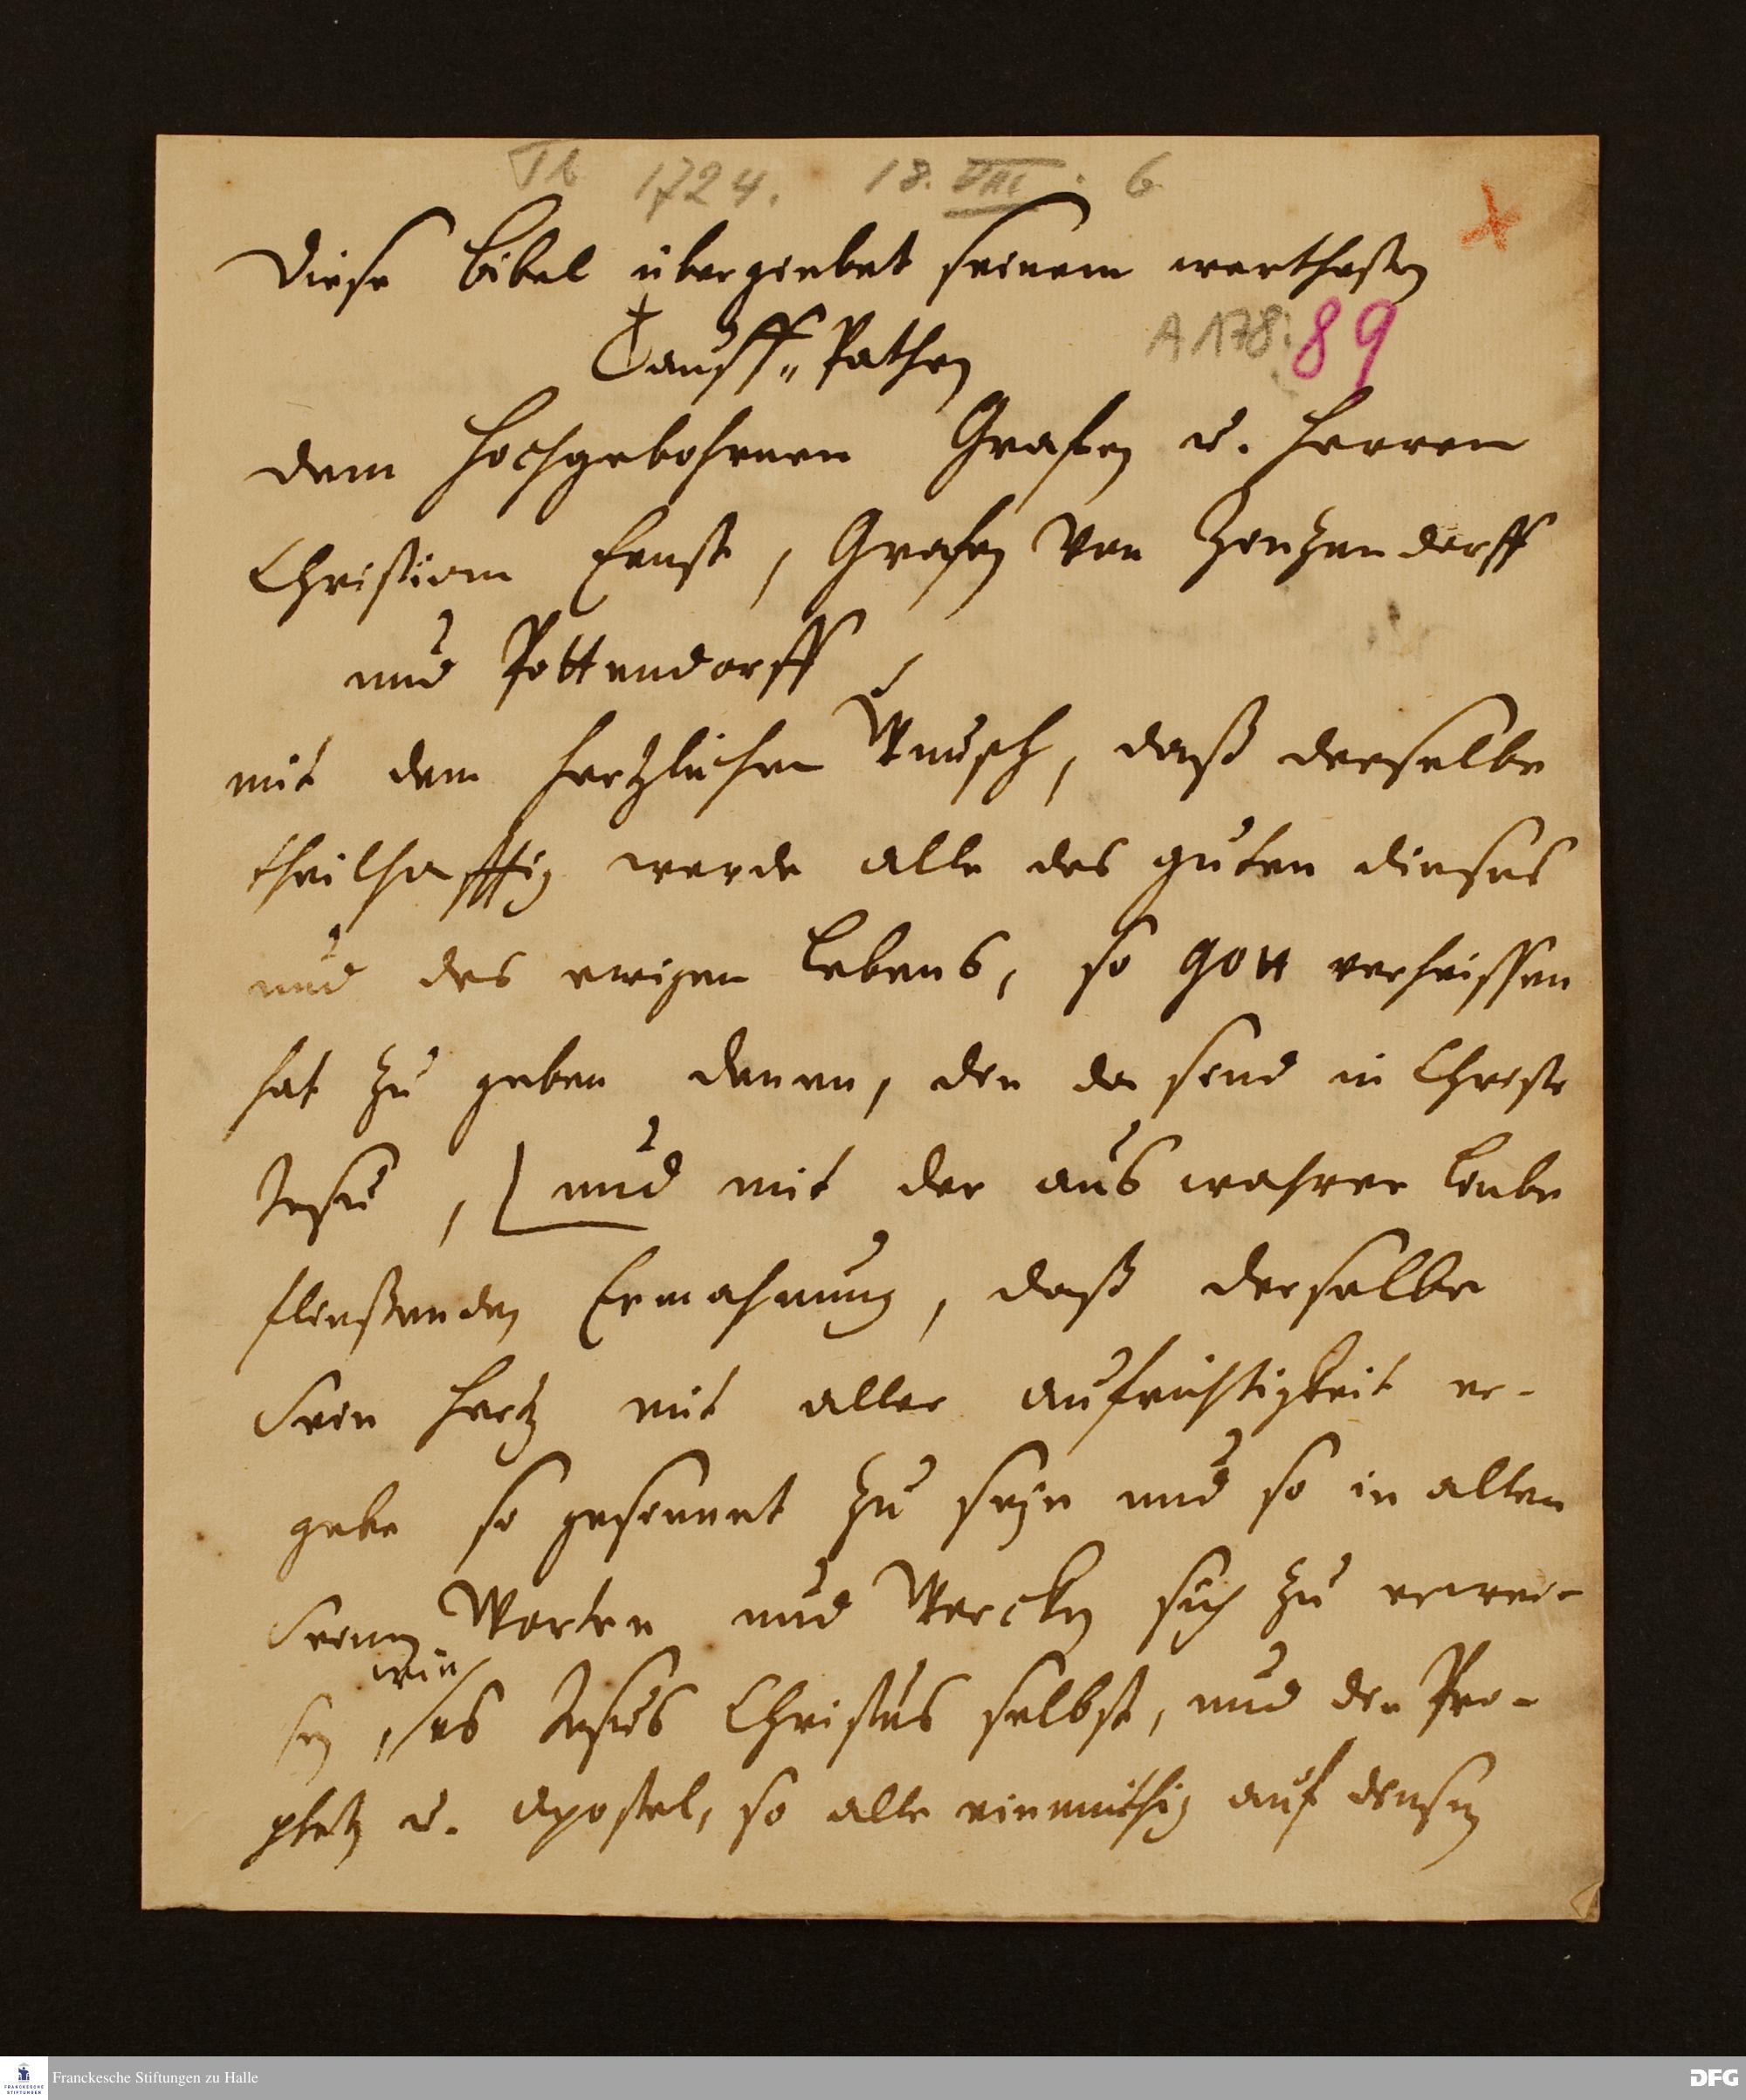 Tb 1724. 18. VIII. 6
Diese Bibel übergiebet seinem werthesten
Tauff-Pathen
A 178: 89
dem Hochgebohrnen Grafen u. Herren
Christian Ernst, Grafen von Zinzendorff
und Pottendorff,
mit dem hertzlichen Wunsch, daß derselbe
theilhafftig werde alle des guten dieses
und des ewigen Lebens, so Gott verheissen
hat zu geben denen, die da sind in Christo
Jesu, und mit der aus wahrer Liebe
fließenden Ermahnung, daß derselbe
Sein Hertz mit aller aufrichtigkeit er-
gebe so gesinnet zu seyn und so in allen
Seinen Worten und Wercken sich zu erwei-
sen, wie es Jesus Christus selbst, und die Pro-
pheten u. Apostel, so alle einmüthig auf diesen
Franckesche Stiftungen zu Halle
DFG